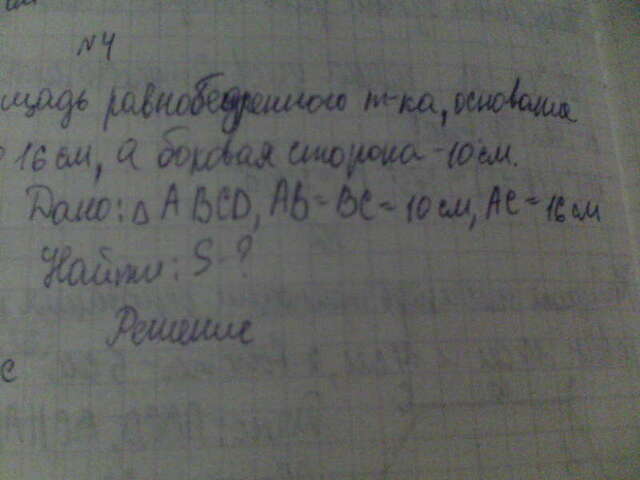 N4
щадь равнобедренного т-ка, основание
16 см, а боковая сторона -10 см.
Дано: △ ABCD, AB = BC = 10 см, AC = 16 см
Найти: S - ?
Решение
с